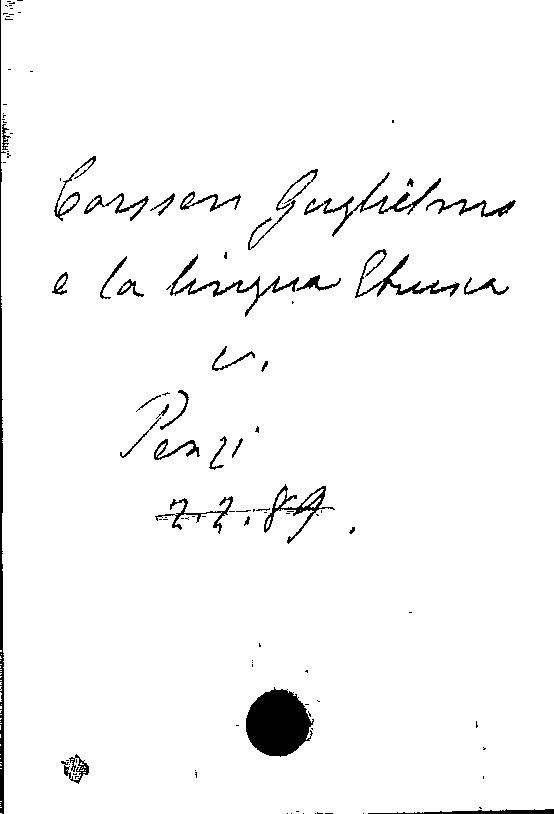 Corssen Guglielmo
e la lingua Etrusca
v.
Penzi
2.2.89.